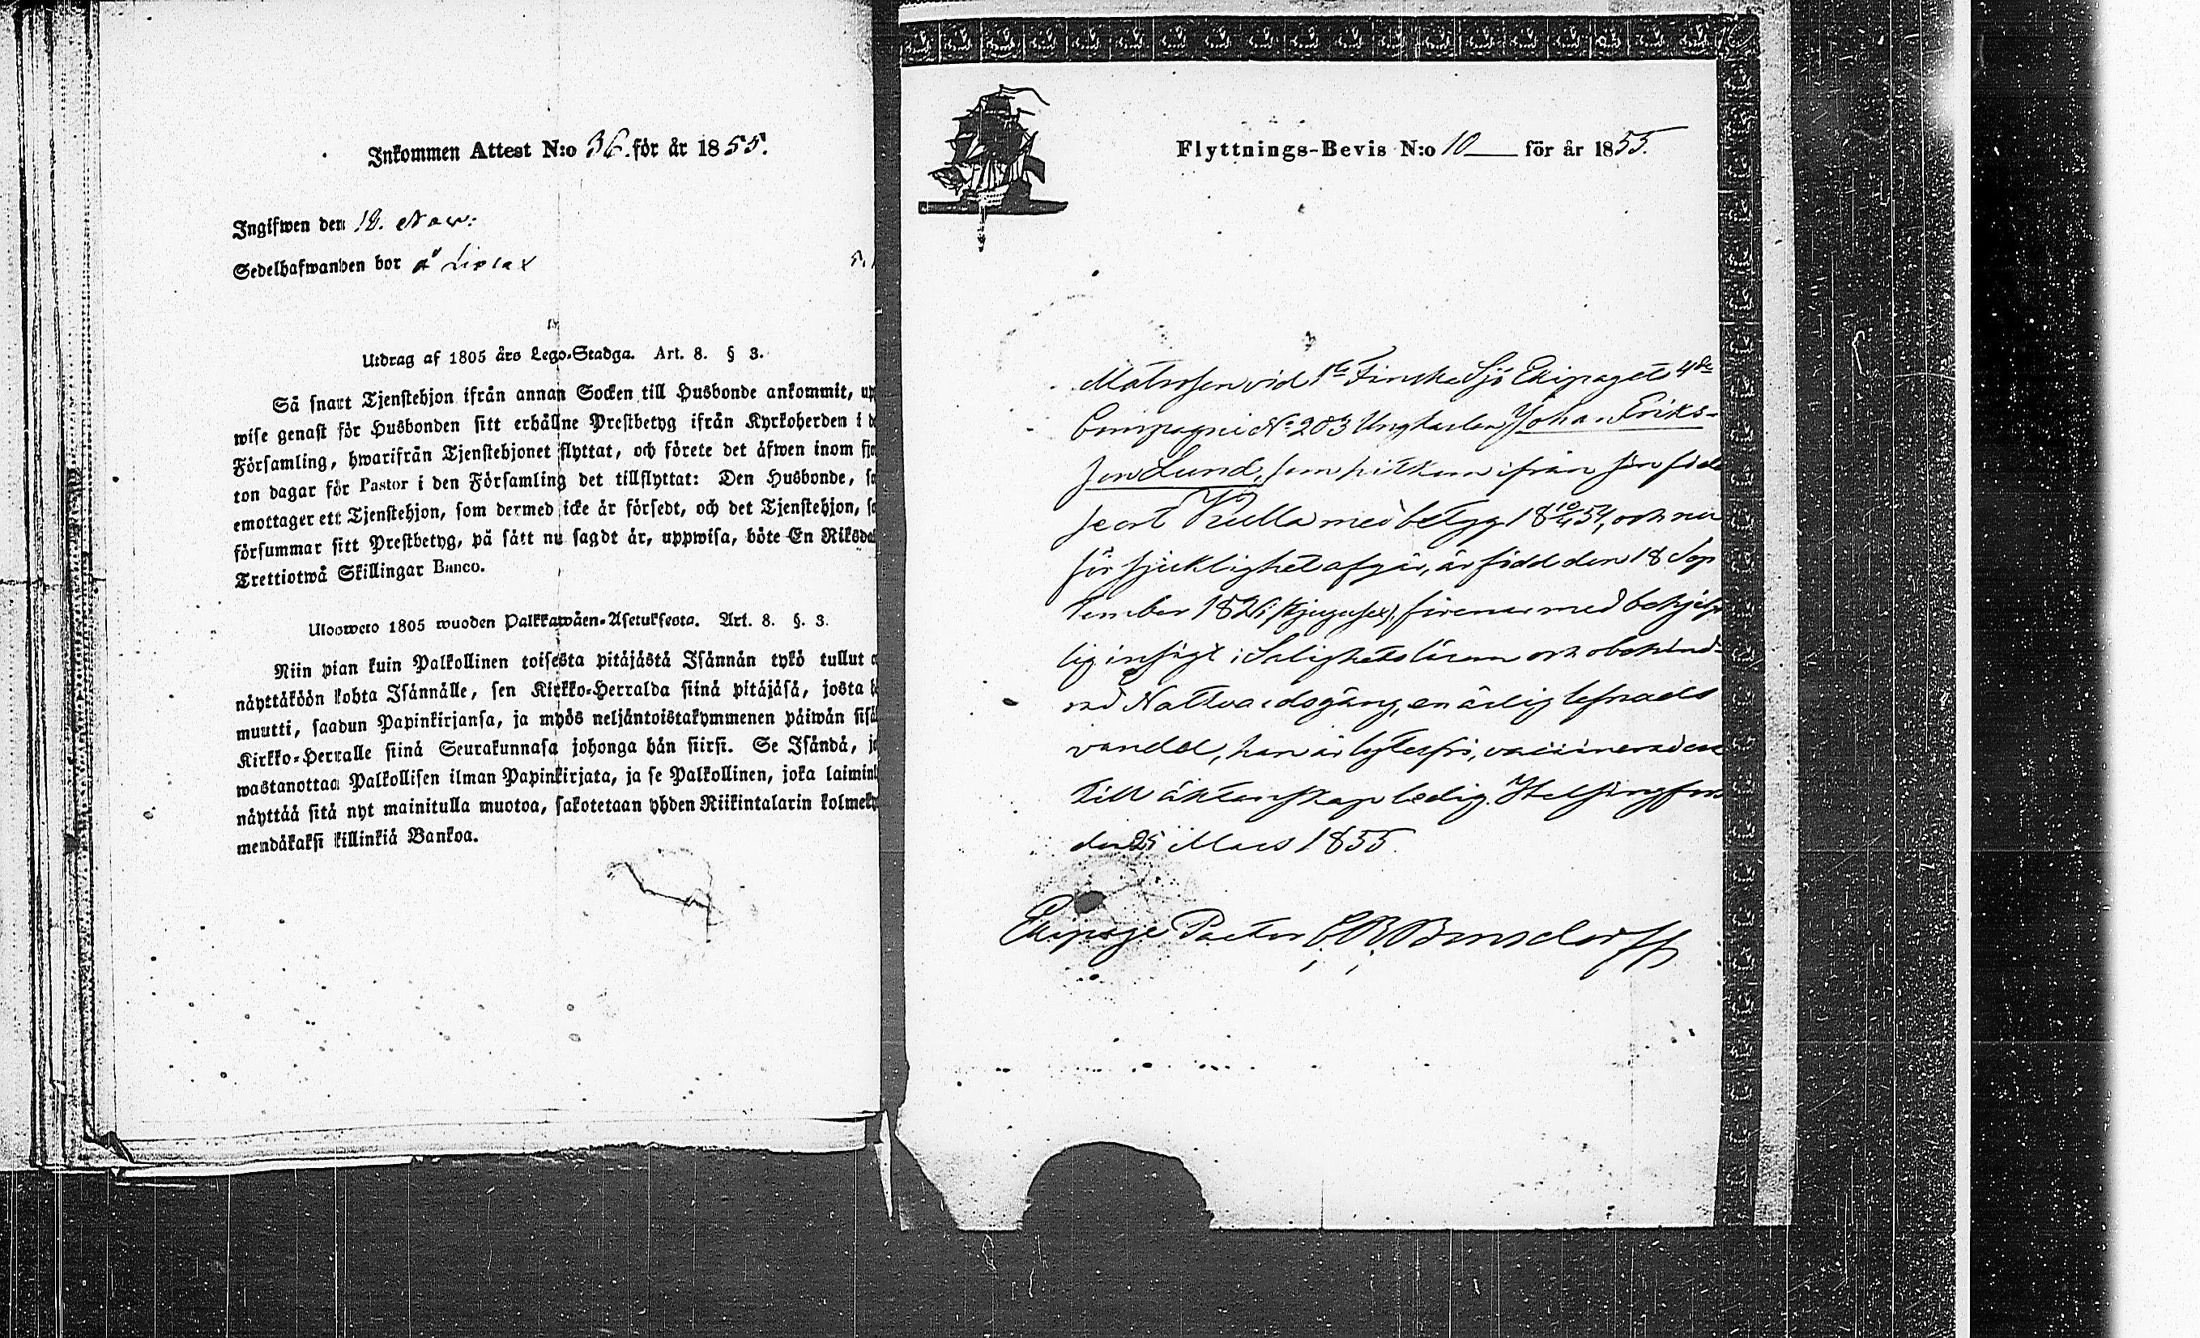 Inkommen Attest N:o 36. för år 1855.
Ingifwen den 19. Nov:
Sedelhafwanden bor å
Utdrag af 1805 års Lego-Stadga. Art. 8. § 3.
Så snart Tjenstehjon ifrån annan Socken till Husbonde ankommit, up
wise genast för Husbonden sitt erhållne Prestbetyg ifrån Kyrkoherden i d
Församling, hwarifrån Tjenstehjonet flyttat, och förete det äfwen inom fjo
ton dagar för Pastor i den Församling det tillflyttat: Den Husbonde, so
emottager ett Tjenstehjon, som dermed icke är försedt, och det Tjenstehjon, so
försummar sitt Prestbetyg, på sått nu sagdt är, uppwisa, böte En Riksda
Trettiotwå Skillingar Banco.
Ulosweto 1805 wuoden Palkkawäen-Asetuksesta. Art. 8. §. 3.
Niin pian kuin Palkollinen toisesta pitäjästä Isännän tykö tullut o
näyttäköön kohta Isännälle, sen Kirkko-Herralda siinä pitäjäsä, josta h
muutti, saadun Papinkirjansa, ja myös neljäntoistakymmenen päiwän sisä
Kirkko-Herralle siinä Seurakunnasa johonga hän siirsi. Se Isändä, jo
wastanottaa Palkollisen ilman Papinkirjata, ja se Palkollinen, joka laimin
näyttää sitä nyt mainitulla muotoa, sakotetaan yhden Riikintalarin kolmeky
mendäkaksi killinkiä Bankoa.
Flyttnings-Bevis N:o 10 för år 1855.
Matrosen vid 1sta Finska Sjö Ekipagets 4de
Compagnie No 203 Ungkarlen Johan Eriks-
son Lund, som hitkom ifrån sinföde
seort med betyg 18 10/4 54, och nu
för sjuklighet afgår, är född den 18 Sep
tember 1826 (tjugusex), förenar med behjelp
lig insigt i Salighetsläran och obehind-
rad Nattvardsgång, en ärlig lefnads
vandel, han är lytesfri, vaccinerad och
till äktenskap ledig. Helsingfors
den 25 Mars 1855.
Ekipage Pastor